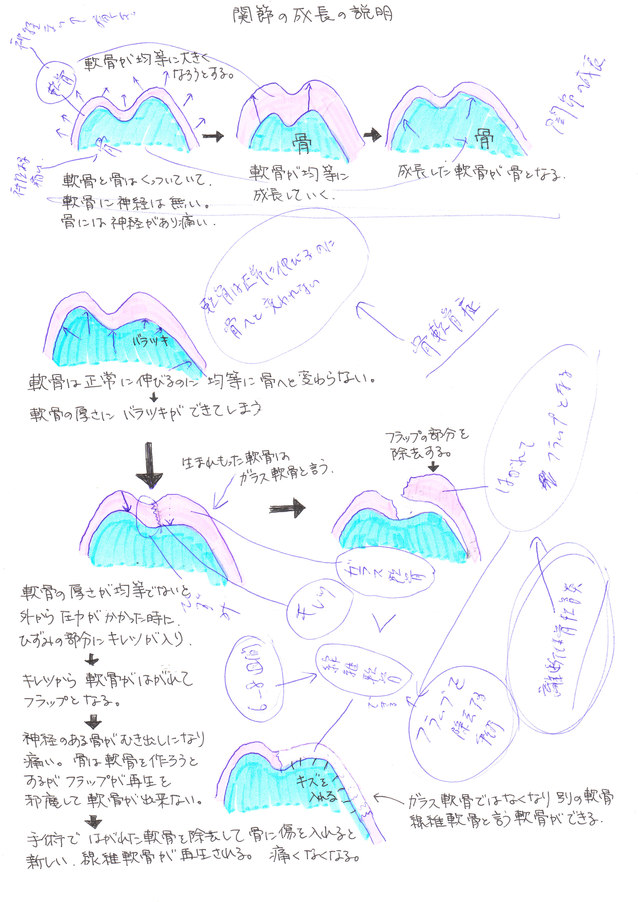 関節の成長の説明
軟骨が均等に大きく
なろうとする。
軟骨
骨
骨
骨
軟骨と骨はくっついていて、
軟骨に神経は無い。
骨には神経があり痛い。
軟骨が均等に
成長していく。
成長した軟骨が骨となる。
関節の成長
軟骨は正常に伸びるのに
骨へと変わらない
骨軟骨症
バラツキ
軟骨は正常に伸びるのに均等に骨へと変わらない。
軟骨の厚さにバラツキができてしまう
生まれもった軟骨は
ガラス軟骨と言う。
フラップの部分を
除去する。
はがれて
フラップとなる
ガラス軟骨
キレツ
ひずみ
軟骨の厚さが均等でないと
外から圧力がかかった時に
ひずみの部分にキレツが入り、
キレツから軟骨がはがれて
フラップとなる。
神経のある骨がむき出しになり
痛い。骨は軟骨を作ろうと
するがフラップが再生を
邪魔して軟骨が出来ない。
手術ではがれた軟骨を除去して骨に傷を入れると
新しい線維軟骨が再生される。痛くなくなる。
線維軟骨
できる
フラップを
除去する
手術
離断性骨軟骨炎
キズを
入れる
ガラス軟骨ではなくなり別の軟骨
線維軟骨と言う軟骨ができる。